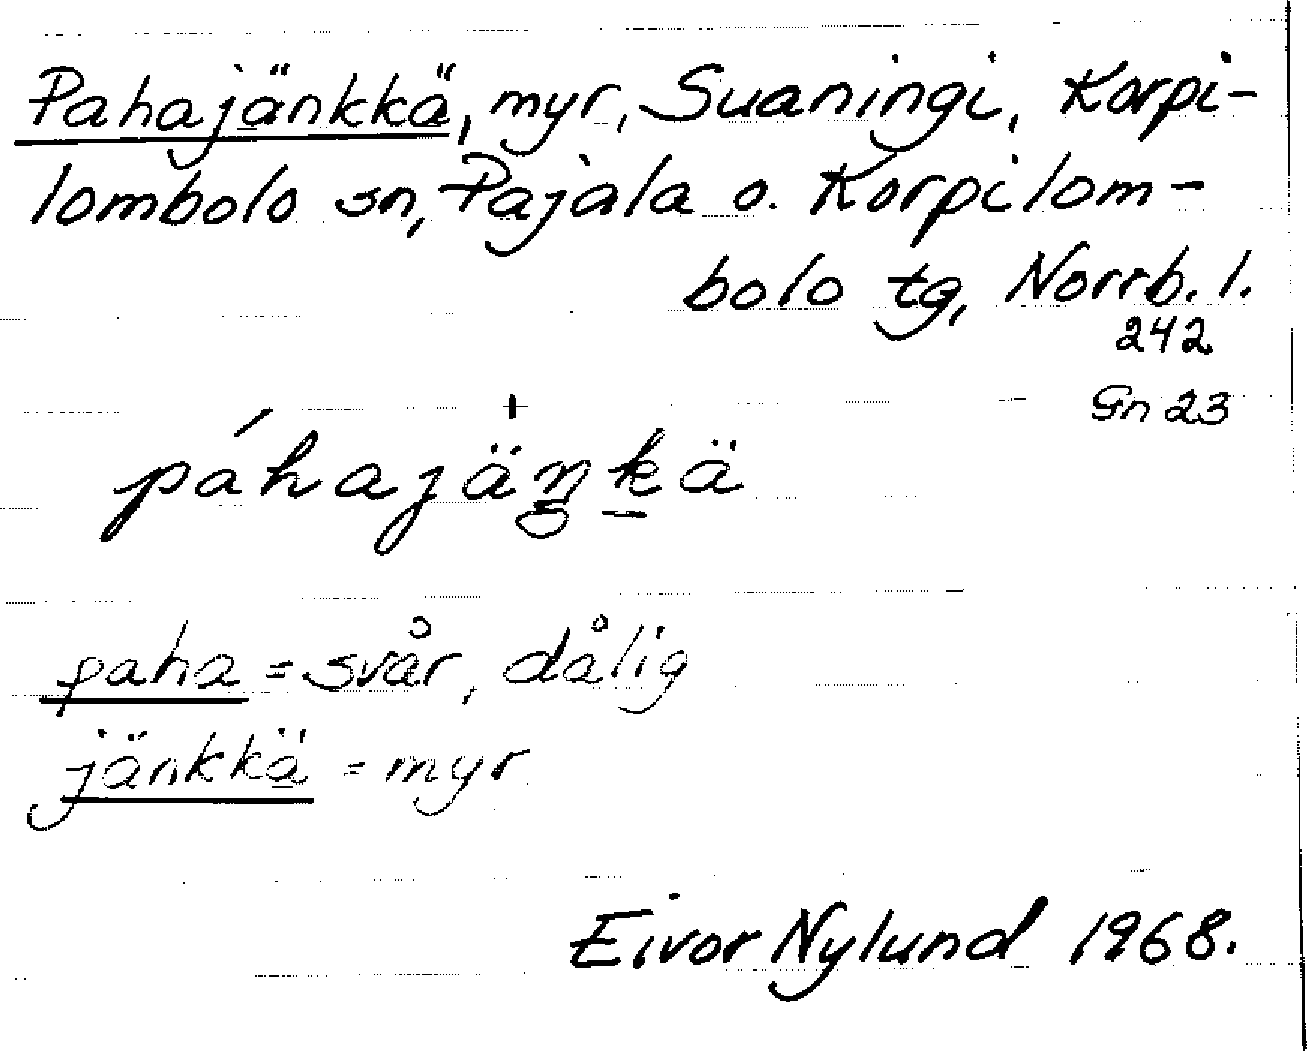 Pahajänkkä, myr, Suaningi, Korpi-
lombolo sn, Pajala o. Korpilom-
bolo tg, Norrb. l.
242
Gn 23
páhajäŋkä
paha = svår, dålig
jänkkä = myr
Eivor Nylund 1968.